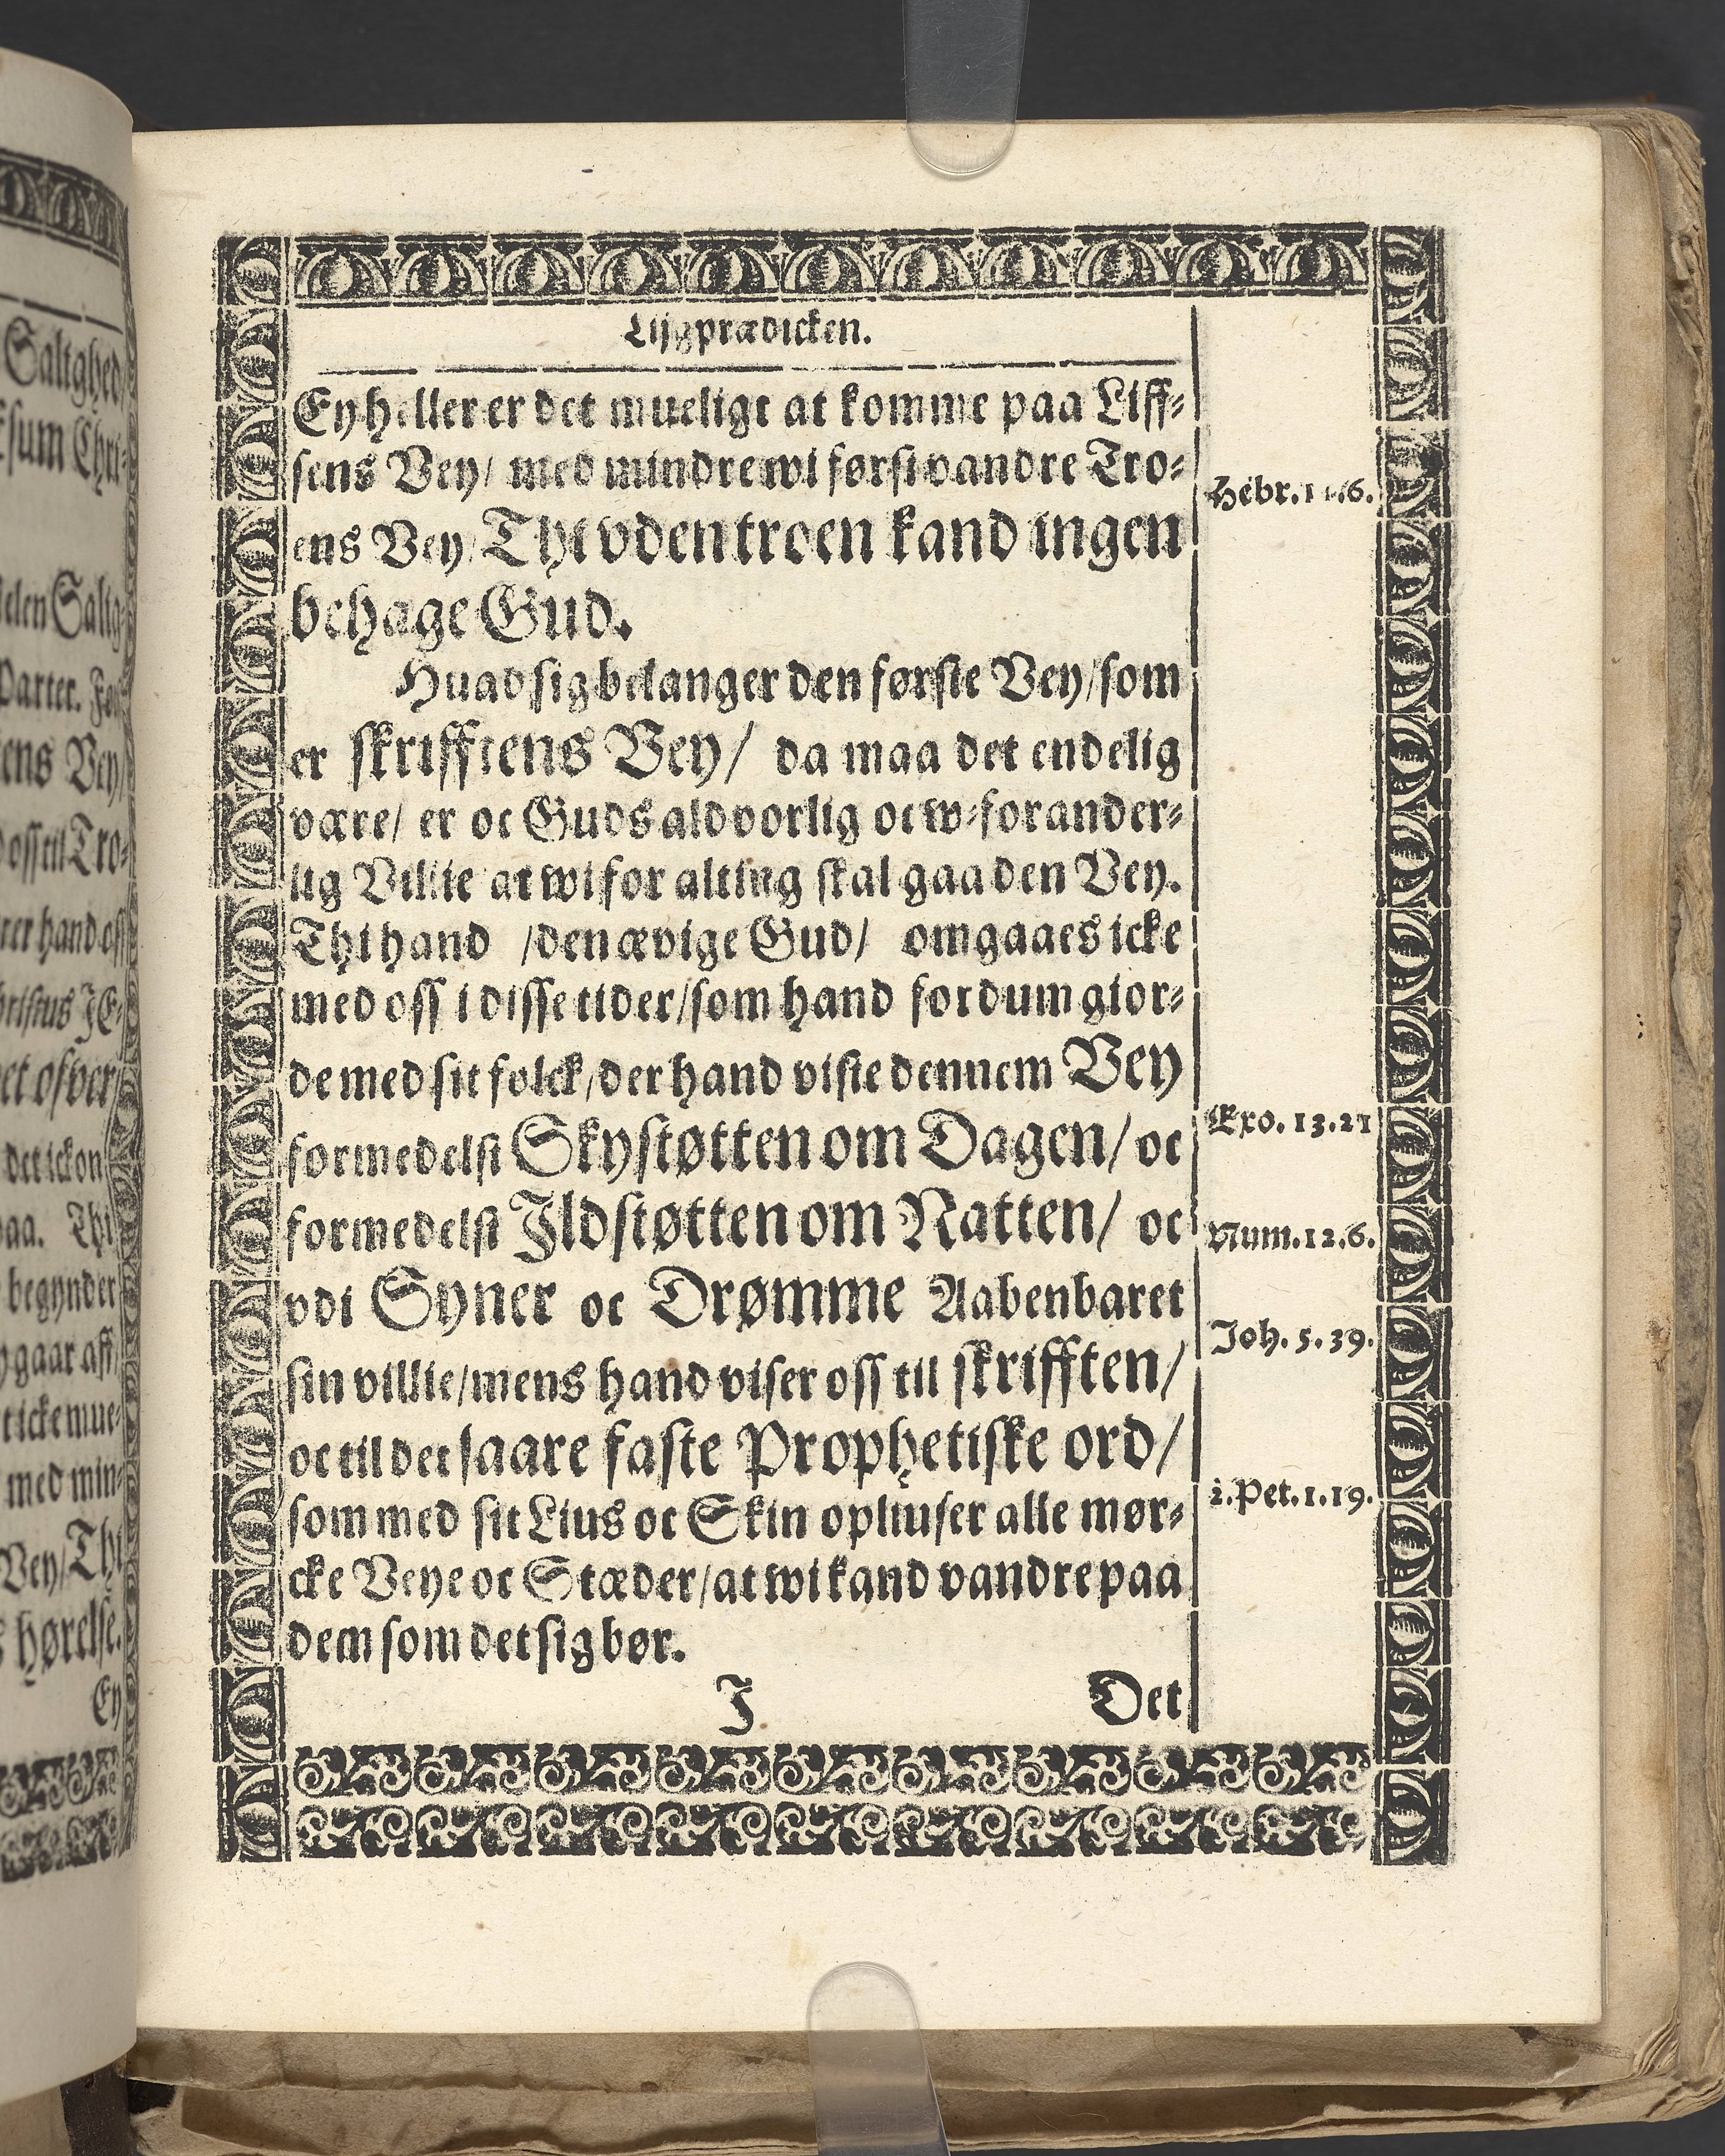 Saligheds
Esum Chri-
delen Salig-
Parter. For
ens Vey/
oss til Tro-
rer hand oss
det icke on
paa. Thi
begynder
gaar aff
t icke mue-
med min-
Vey/Thi
s hørelse.
Ey
Lijgprædicken.
Ey heller er det mueligt at komme paa Liff-
sens Vey/ med mindre wi først vandre Tro-
ens Vey/ Thi vden troen kand ingen
behage Gud.
Hebr. 11.6.
Huad sig belanger den første Vey/som
er skrifftens Vey/ da maa det endelig
være/ er oc Guds aldvorlig oc w-forander-
lig Villie at wi for alting skal gaa den Vey.
Thi hand /den ævige Gud/ omgaaes icke
med oss i disse tider/som hand fordum gior-
de med sit folck/der hand viste dennem Vey
formedelst Skystøtten om Dagen/ oc
Exo. 13.21
formedelst Ildstøtten om Natten/ oc
Num.12.6.
vdi Syner oc Drømme Aabenbaret
sin villie/mens hand viser oss til skrifften/
Joh. 5. 39.
oc til det saare faste Prophetiske ord/
som med sit Lius oc Skin opliuser alle mør-
2.Pet.1.19.
cke Veye oc Stæder/at wi kand vandre paa
dem som det sig bør.
I Det